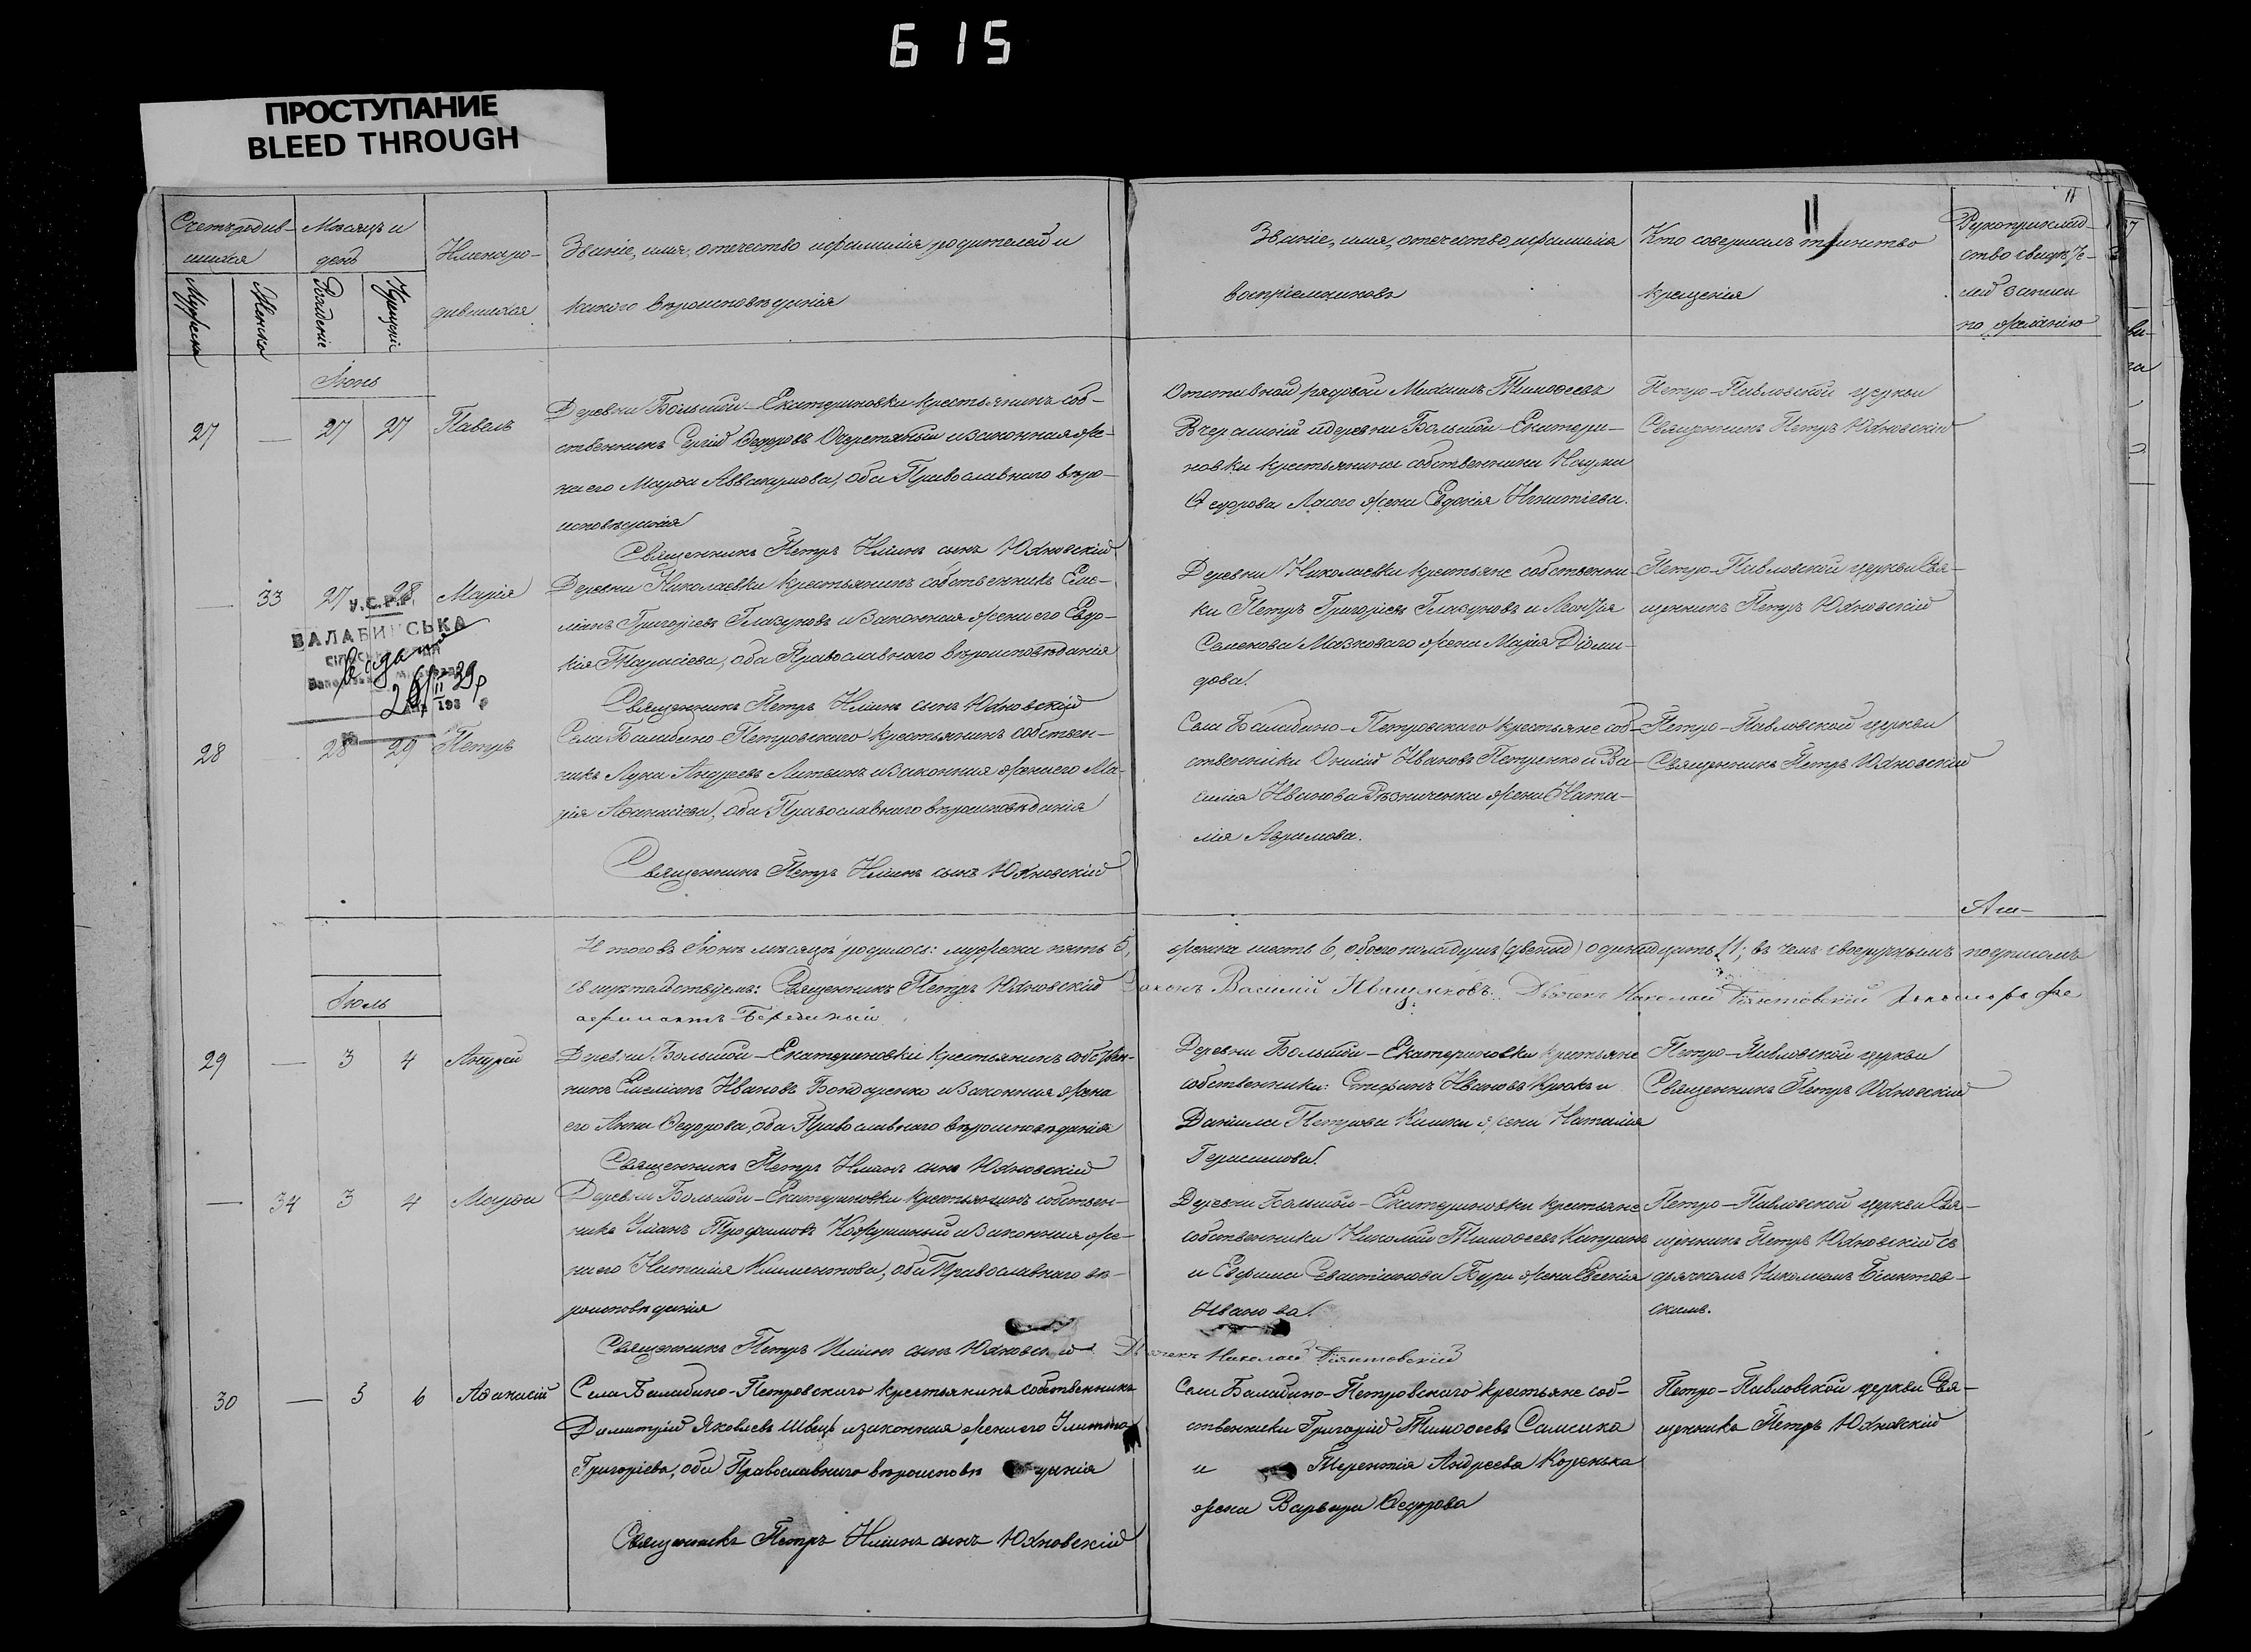 615
ПРОСТУПАНИЕ
BLEED THROUGH
11
Счетъ родив-
шихся
Мѣсяцъ и
день
Имена ро-
дившихся
Званіе, имя, отечество и фамилія родителей и
какого вѣроисповѣданія
Званіе, имя, отечество и фамилія
воспріемниковъ
Кто совершалъ таинство
крещенія
Рукоприклад-
ство свидѣте-
лей записи
по желанію
Мужска
Женска
Рожденіе
Крещеніе
Іюнь
27 — 27 27 Павелъ
Деревни Большой-Екатериновки крестьянинъ соб-
ственникъ Сергій Ѳедоровъ Очеретяный и законная же-
на его Марѳа Аввакумова, оба Православнаго вѣро-
исповѣданія
Священникъ Петръ Иліинъ сынъ Юхновскій
Отставной рядовой Михаилъ Тимоѳеевъ
и деревни Большой-Екатери-
новки крестьянина собственника Наума
Ѳедорова жена Евдокія Игнатіева.
Петро-Павловской церкви
Священникъ Петръ Юхновскій
— 33 27 28 Марія
Деревни Николаевки крестьянинъ собственникъ Еме-
ліанъ Григоріевъ Глазуновъ и законная жена его Евдо-
кія Тарасіева, оба Православнаго вѣроисповѣданія
Священникъ Петръ Иліинъ сынъ Юхновскій
Деревни Николаевки крестьяне собственни-
ки Петръ Григоріевъ Глазуновъ и
Семенова Мазковаго жена Марія Діоми-
дова.
Петро-Павловской церкви Свя-
щенникъ Петръ Юхновскій
У.С.Р.Р.
БАЛАБИНСЬКА
193
28 28 29 Петръ
Села Балабино-Петровскаго крестьянинъ собствен-
никъ Лука Андреевъ Литвинъ и законная жена его Ма-
рія Аѳанасіева, оба Православнаго вѣроисповѣданія
Священникъ Петръ Иліинъ сынъ Юхновскій
Села Балабино-Петровскаго крестьяне соб-
ственники Онисій Ивановъ Петренко и Ва-
силія Иванова Рѣзниченка жена Ната-
лія Аврамова.
Петро-Павловской церкви
Священникъ Петръ Юхновскій
Итого въ Іюнѣ мѣсяцѣ родилось: мужска пять 5, женска шесть 6, обоего пола душъ (двойня) одинадцать 11; въ чемъ своеручнымъ подписомъ
свидѣтельствуемъ: Священникъ Петръ Юхновскій Діаконъ Василій Иващенковъ. Дьячекъ Николай Біянтовскій
Іюль
29 — 3 4 Андрей
Деревни Большой-Екатериновки крестьянинъ собствен-
никъ Емеліанъ Ивановъ Бондаренко и законная жена
его Анна Ѳедорова, оба Православнаго вѣроисповѣданія
Священникъ Петръ Иліинъ сынъ Юхновскій
Деревни Большой-Екатериновки крестьяне
собственники: Стефанъ Ивановъ Крюкъ и
Даніила Петрова Кишки жена Наталія
Герасимова.
Петро-Павловской церкви
Священникъ Петръ Юхновскій
— 34 3 4 Марѳа
Деревни Большой-Екатериновки крестьянинъ собствен-
никъ Уліанъ Трофимовъ Кожушный и законная же-
на его Наталія Климентова, оба Православнаго вѣ-
роисповѣданія
Священникъ Петръ Иліинъ сынъ Юхновскій Дьячекъ Николай Біянтовскій
Деревни Большой-Екатериновки крестьяне
собственники Николай Тимоѳеевъ Капранъ
и Евфима Севастіанова Бури жена Евгенія
Иванова.
Петро-Павловской церкви Свя-
щенникъ Петръ Юхновскій съ
дьячкомъ Николаемъ Біянтов-
скимъ.
30 — 5 6 Аѳанасій
Села Балабино-Петровскаго крестьянинъ собственникъ
Димитрій Яковлевъ Швецъ и законная жена его Улитта
Григоріева, оба Православнаго вѣроисповѣданія
Священникъ Петръ Иліинъ сынъ Юхновскій
Села Балабино-Петровскаго крестьяне соб-
ственники Григорій Тимоѳеевъ Самсика
и Терентія Андреева Коренька
жена Варвара Ѳедорова
Петро-Павловской церкви Свя-
щенникъ Петръ Юхновскій